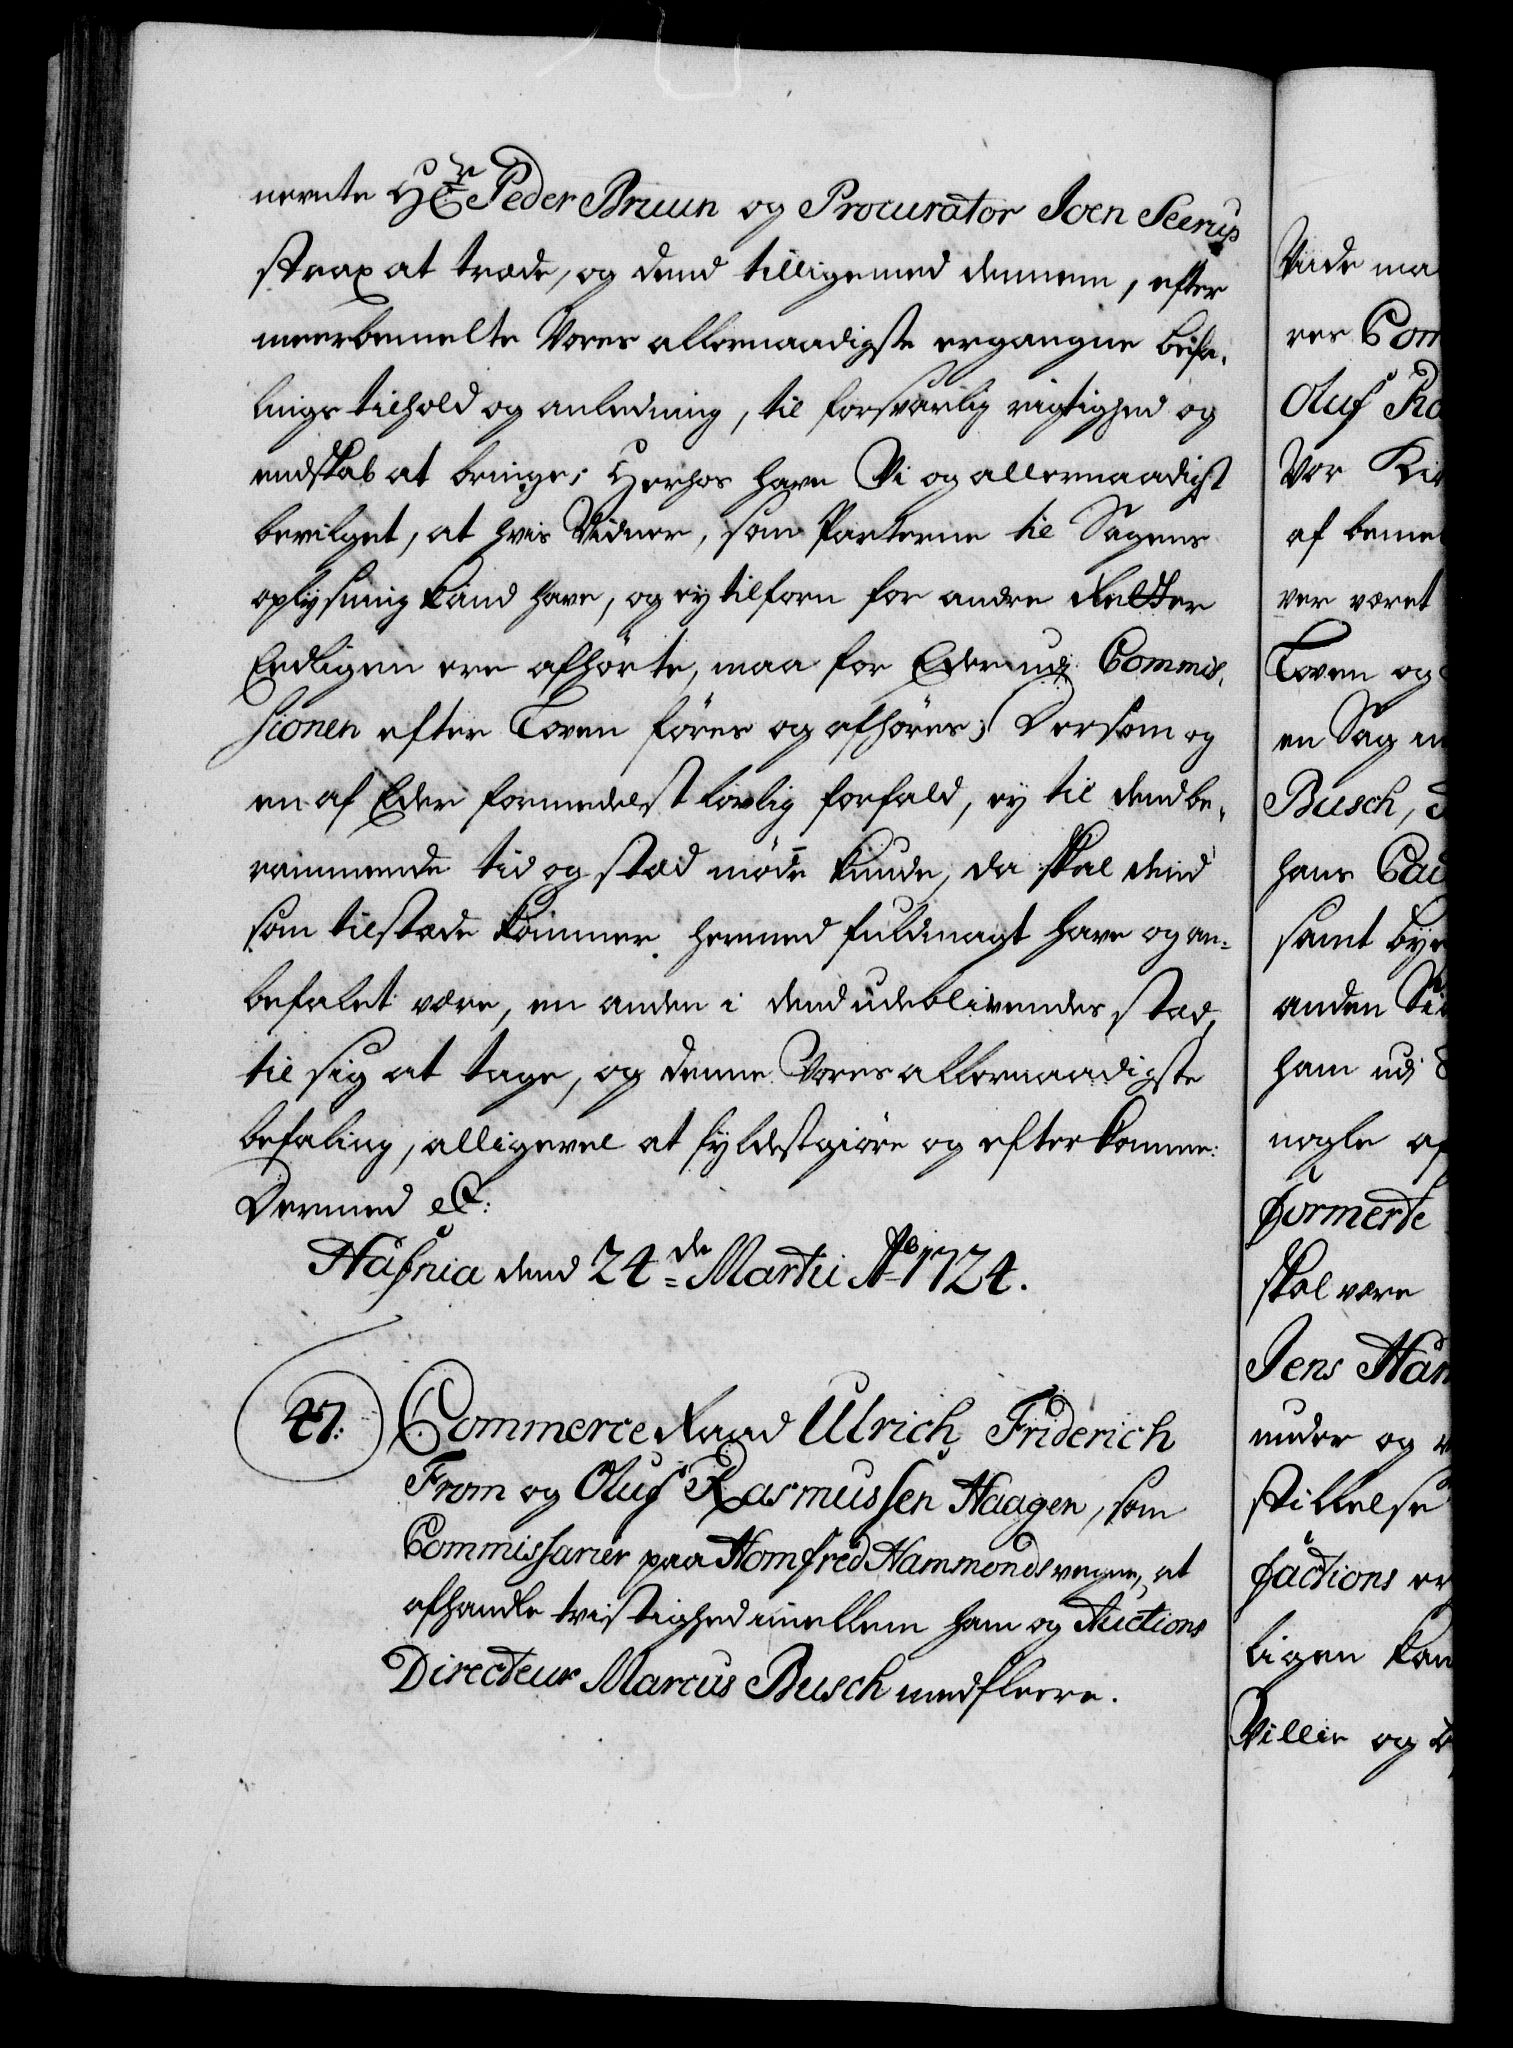 nevnte Hr. Peder Bruun og Procurator Joen Seerup
strax at træde, og dend tilligemed dennem, efter
meerbemelte Vores allernaadigste ergangne befa-
lings tilhold og anledning, til forsvarlig rigtighed og
endskab at bringe; Herhos have Vi og allernaadigst
bevilget, at hvis Vidner, som Parterne til Sagens
oplysning kand have, og ey tilforn for andre Retter
Eedligen ere afhørte, maa for Eder udj Commis-
sionen efter Loven føres og afhøres; Dersom og
en af Eder formedelst lovlig forfald, ey til dend be-
rammende tid og stæd møde kunde, da skal dend
som tilstæde kommer hermed fuldmagt have og an-
befalet være, en anden i dend udeblivendes stæd,
til sig at tage, og denne Vores allernaadigste
befaling, alligevel at fyldestgiøre og efterkomme.
Dermed etc:
Hafnia dend 24de Martii Ao 1724.
47. Commerce Raad Ulrich Friderich
From og Oluf Rasmussen Haagen, som
Commissarier paa Homfred Hammonds vegne, at
afhandle tvistighed imellem ham og Auctions
Directeur Marcus Busch med fleere.
Vide ma
res Com
Oluf
Vor
af beme
ver været
Loven og
en Sag
Busch,
hans
samt bye
anden
ham udj
nogle af
formerte
skal være
Jens Ham
under og
stillelse
factions
ligen kan
Villie og